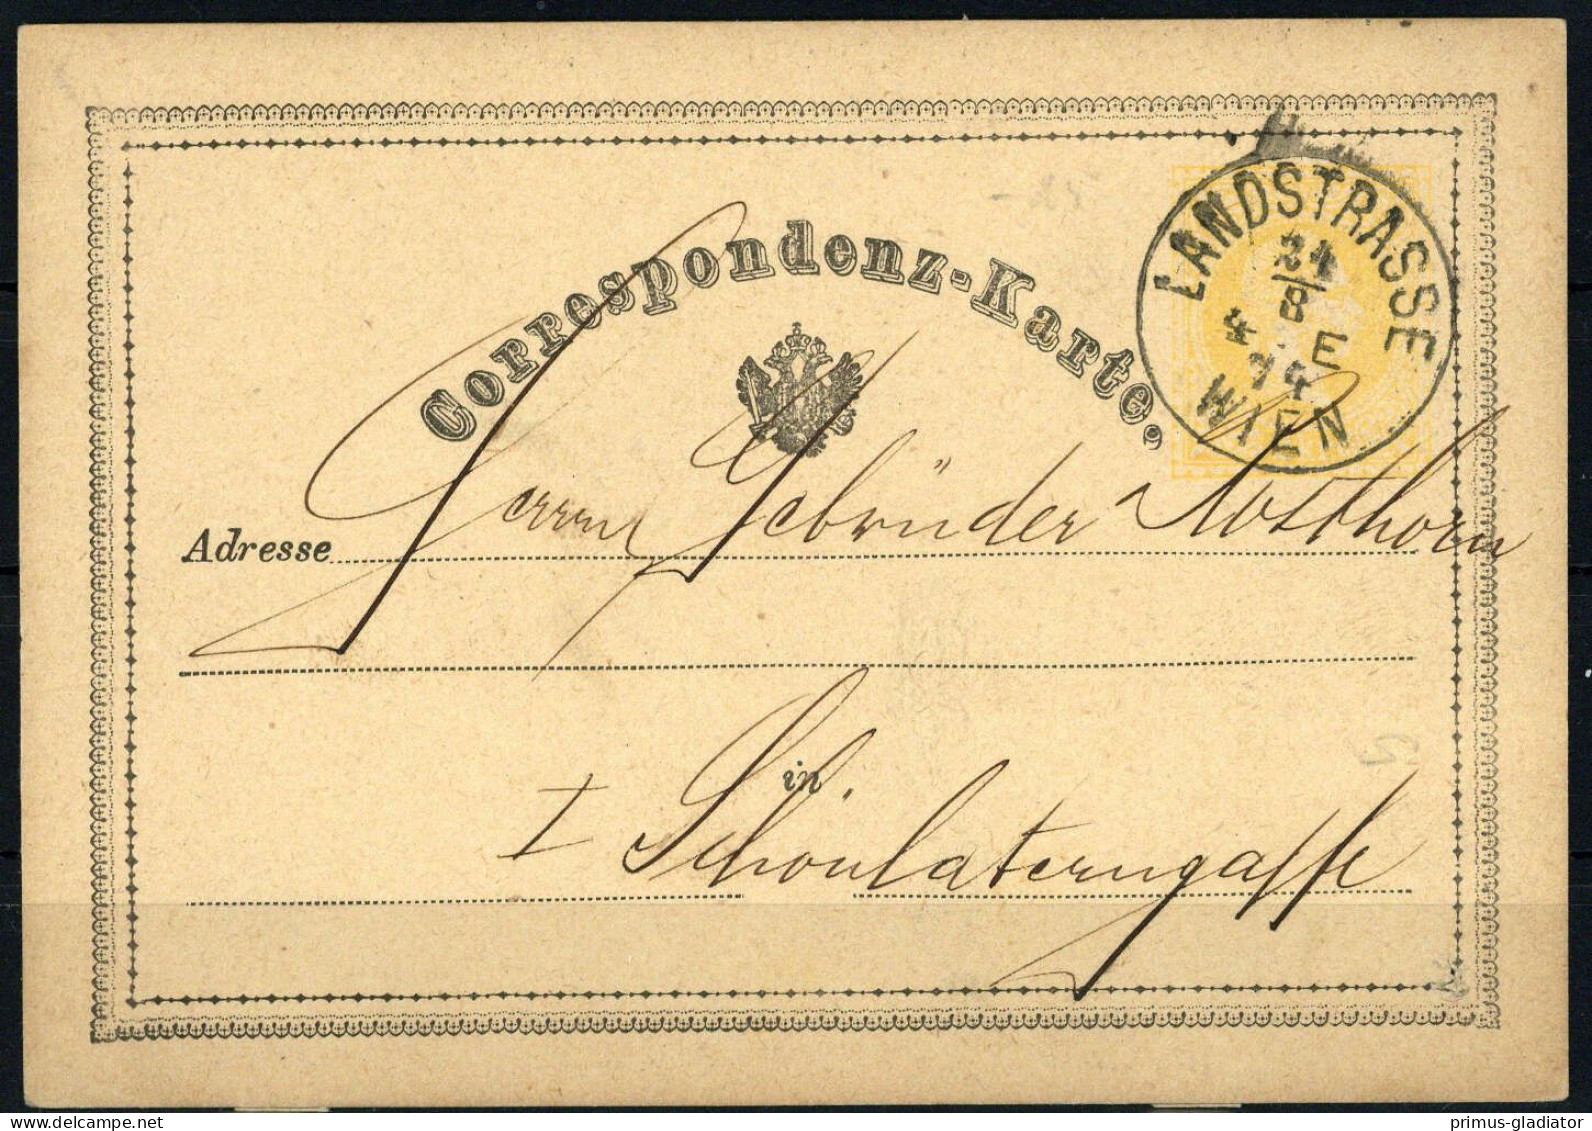 Correspondenz-Karte.
LANDSTRASSE
24
8
4 E
74
WIEN
Herrn Gebrüder Rosthorn
Adresse
in
I Schönlaterngasse
primus-gladiator